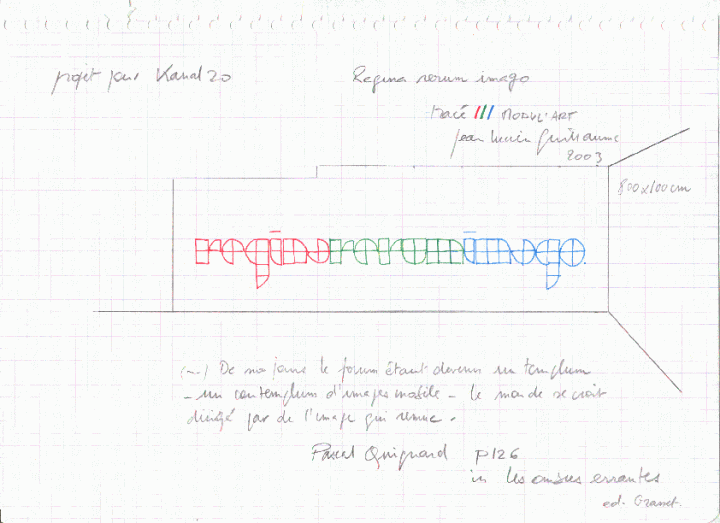 projet pour Kanal 20
Regina rerum imago
tracé /// MODUL'ART
Jean Lucien Guillaume
2003
800x100cm
reginarerumimago
(...) De nos jours le forum étant devenu un templum
- un contemplum d'images mobile - le monde se croit
dirigé par de l'image qui remue.
Pascal Quignard p126
in les ombres errantes
ed. Grasset.